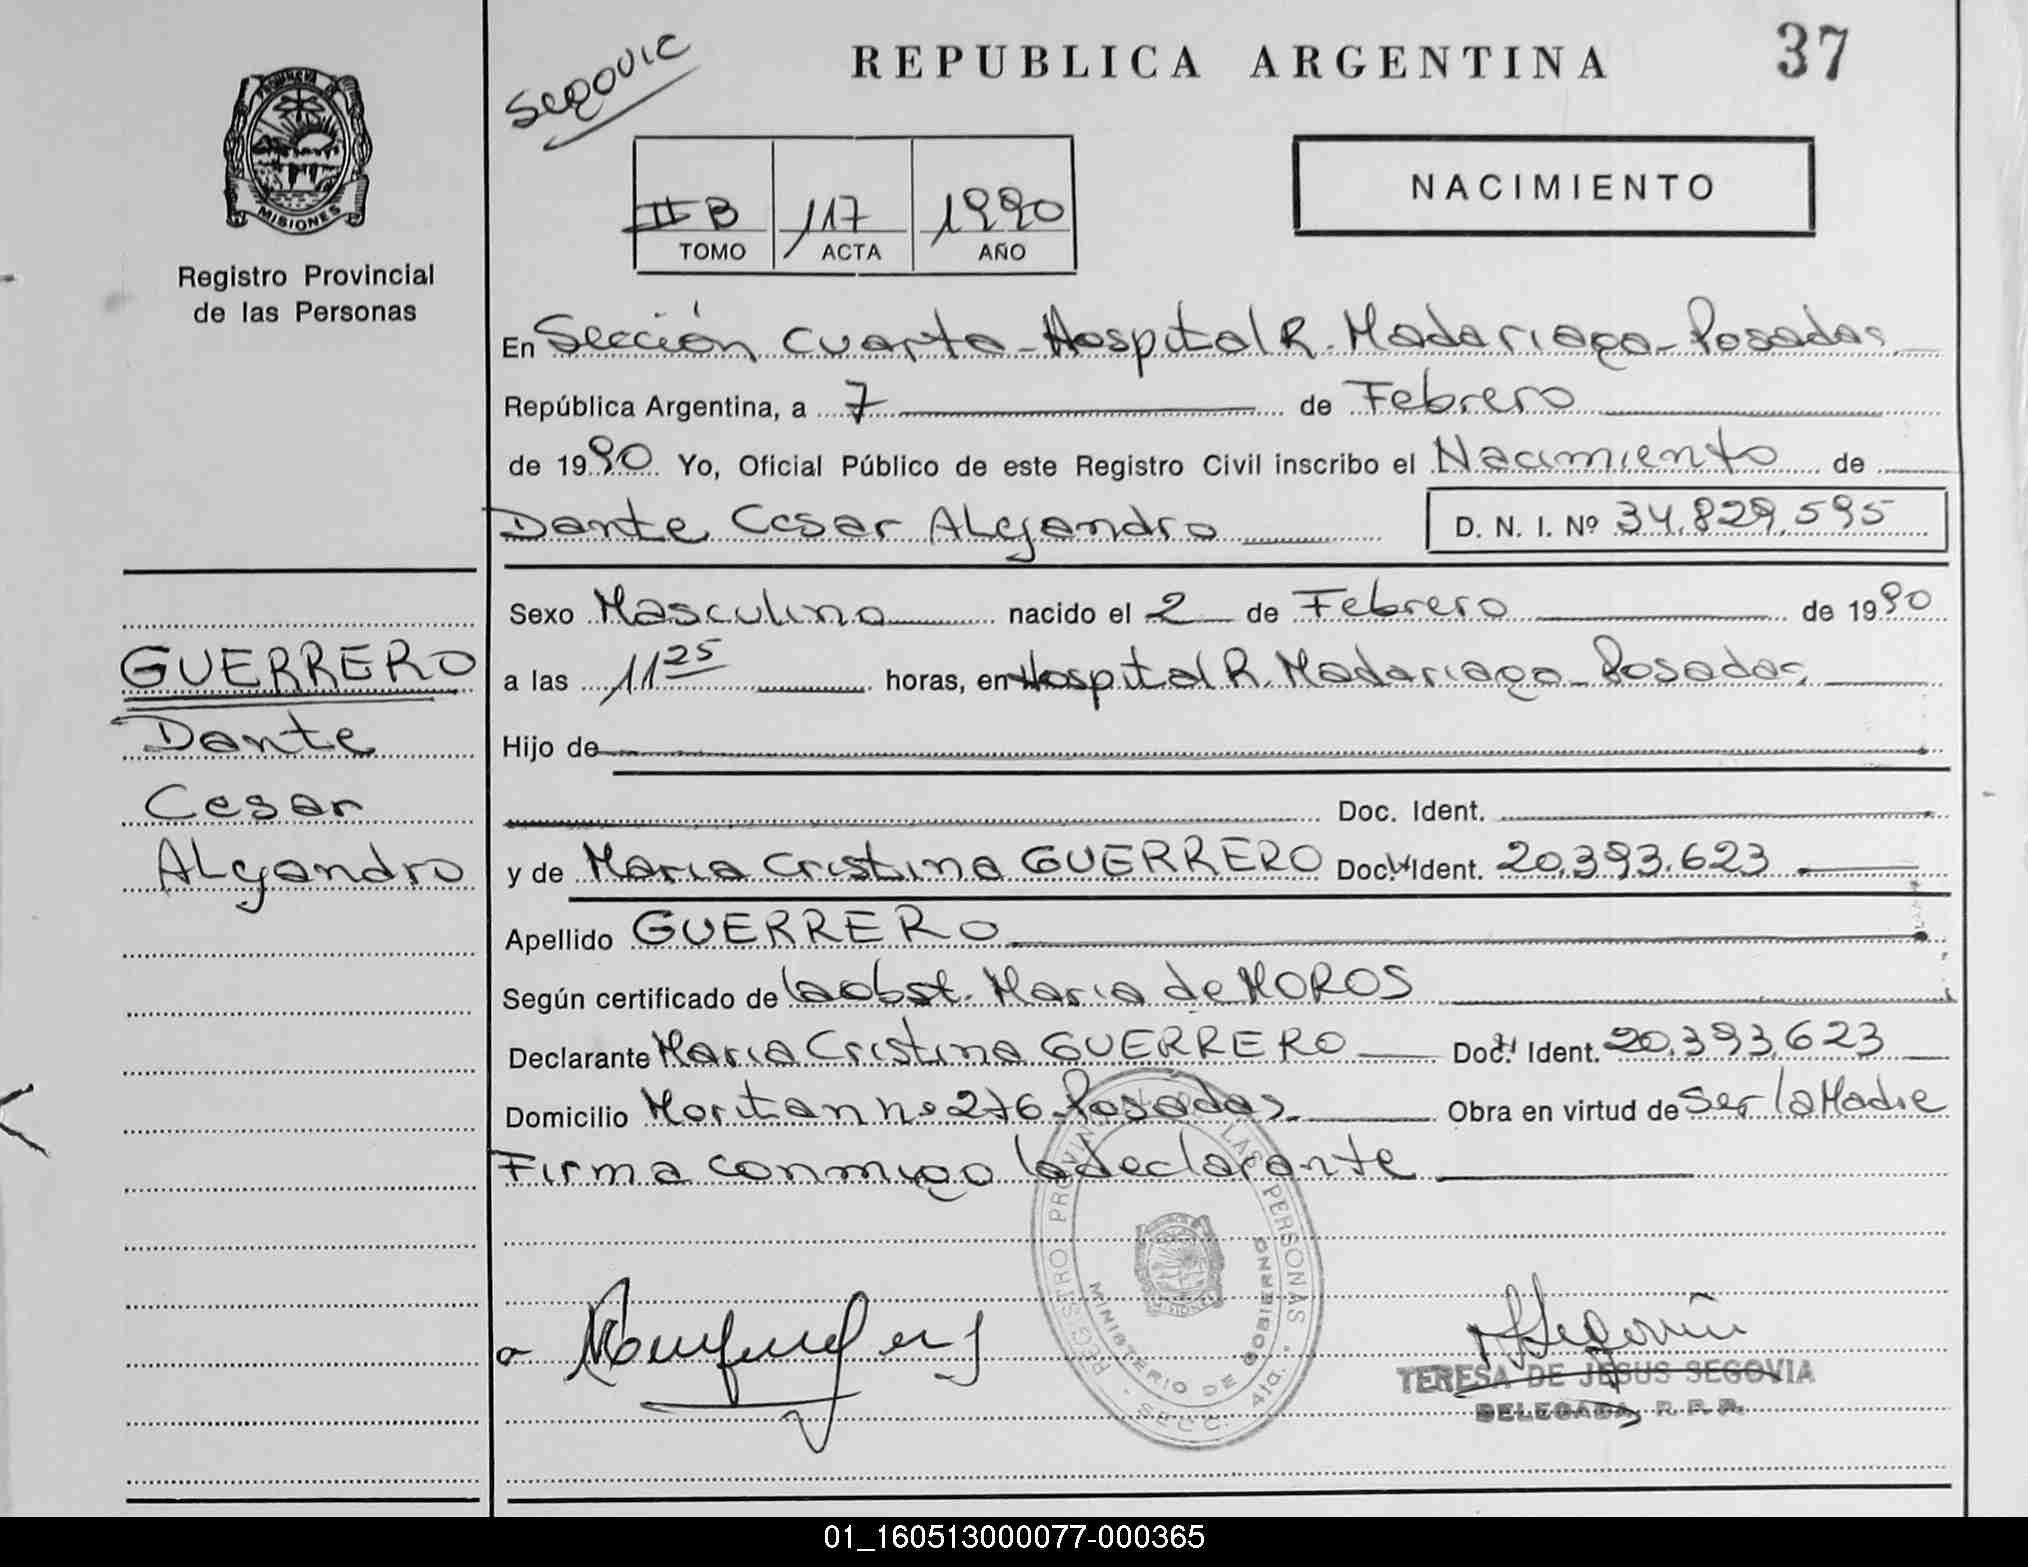 Segovic
REPUBLICA ARGENTINA
37
MISIONES
Registro Provincial
de las Personas
II B 117 1990
TOMO ACTA AÑO
NACIMIENTO
En Sección Cuarta - Hospital R. Madariaga - Posadas
República Argentina, a 7 de Febrero
de 1990 Yo, Oficial Público de este Registro Civil inscribo el Nacimiento de
Dante Cesar Alejandro D. N. I. Nº 34.829.595
Sexo Masculino nacido el 2 de Febrero de 1990
a las 11 25 horas, en Hospital R. Madariaga - Posadas
Hijo de
Doc. Ident.
y de Maria Cristina GUERRERO Doc. Ident. 20.393.623
Apellido GUERRERO
Según certificado de la obst. Maria de MOROS
Declarante Maria Cristina GUERRERO Doc. Ident. 20.393.623
Domicilio nº 276 - Posadas Obra en virtud de Ser la Madre
Firma conmigo la declarante
GUERRERO
Dante
Cesar
Alejandro
REGISTRO PROVINCIAL DE LAS PERSONAS
MINISTERIO DE GOBIERNO
SECC. 4ta.
MISIONES
TERESA DE JESUS SEGOVIA
DELEGADA R. P. P.
01_160513000077-000365